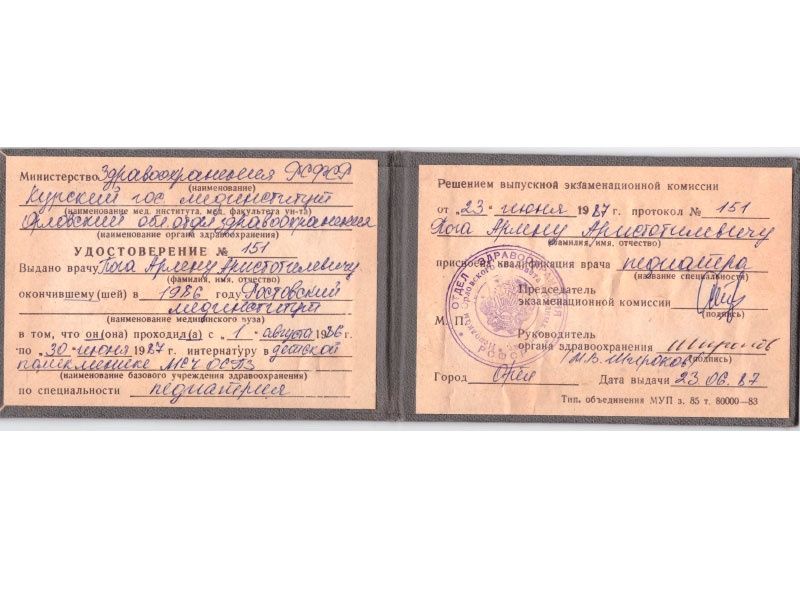 Министерство Здравоохранения РСФСР
(наименование)
Курский гос мединститут
(наименование мед. института, мед. факультета ун-та)
Орловский обл отдел здравоохранения
(наименование органа здравоохранения)
УДОСТОВЕРЕНИЕ № 151
Выдано врачу Пога Армену Аристотилевичу
(фамилия, имя, отчество)
окончившему(шей) в 1986 году Ростовский
мединститут
(наименование медицинского вуза)
в том, что он(она) проходил(а) с „1“ августа 1986г.
по „30“ июня 1987 г. интернатуру в детской
поликлинике МСЧ ОСПЗ
(наименование базового учреждения здравоохранения)
по специальности педиатрия
Решением выпускной экзаменационной комиссии
от „23“ июня 1987 г. протокол № 151
Пога Армену Аристотилевичу
(фамилия, имя, отчество)
присвоена квалификация врача педиатра
(название специальности)
Председатель
экзаменационной комиссии
(подпись)
М. П.
Руководитель
органа здравоохранения
(подпись)
М.В. Широков
Город Орел Дата выдачи 23.06.87
Тип. объединения МУП з. 85 т. 80000—83
ОТДЕЛ ЗДРАВООХР
РСФСР